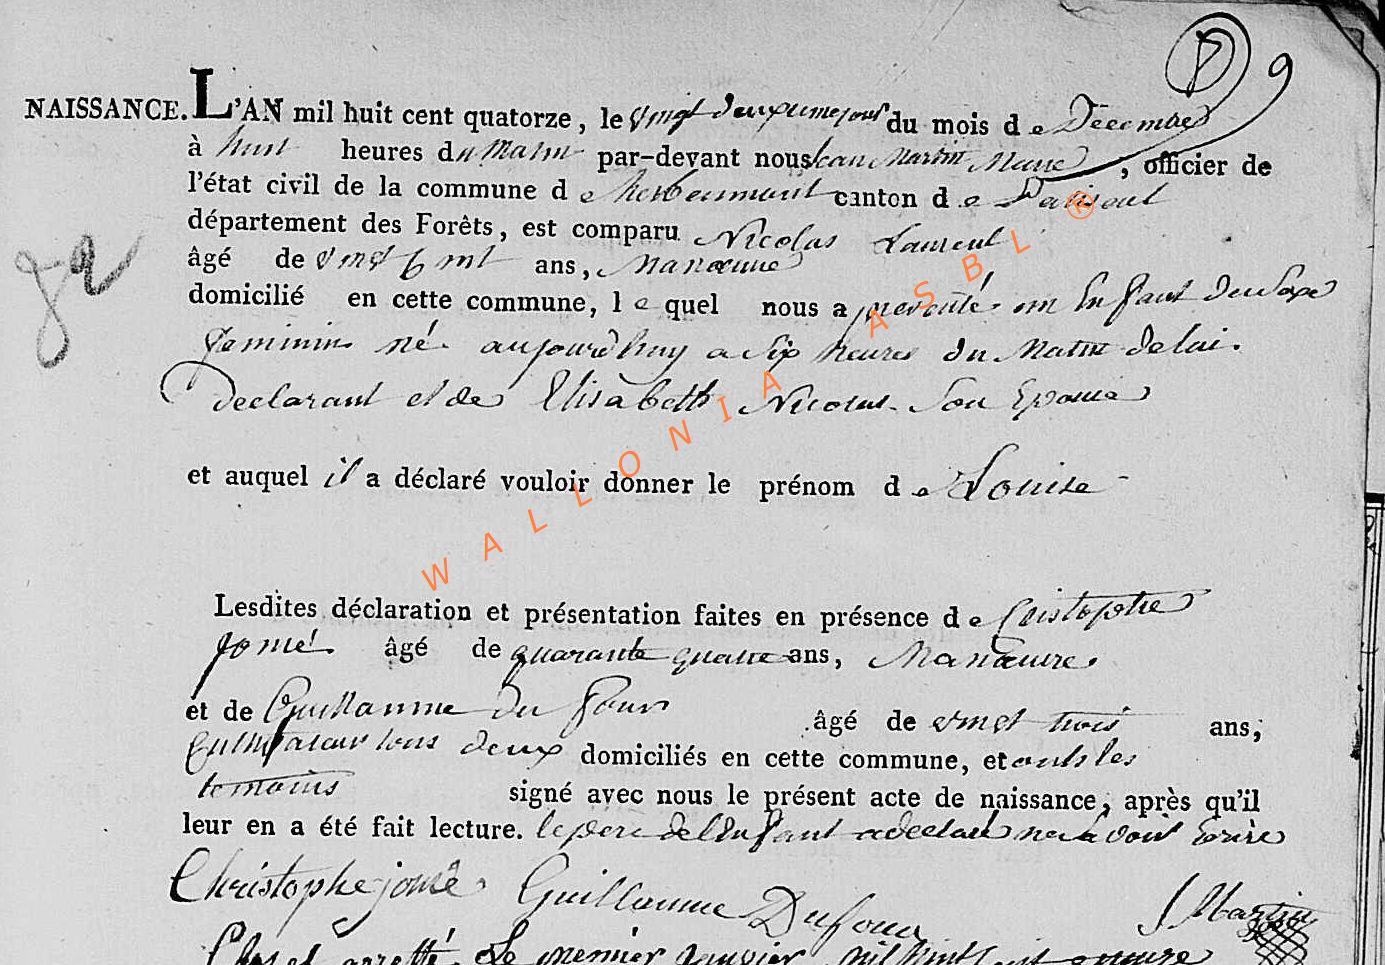 9
NAISSANCE. L'AN mil huit cent quatorze, le vingt deuxieme jour du mois de Decembre
à huit heures du matin par-devant nous Jean Martin Maire, officier de
l'état civil de la commune de herbeumont canton de Paliseul
département des Forêts, est comparu Nicolas Laurent
âgé de vingt ans, Manœuvre
domicilié en cette commune, lequel nous a presenté un Enfant du Sexe
feminin né aujourdhuy a Six heures du Matin de lui
Declarant et de Elisabeth Nicolas Son Epouse
et auquel il a déclaré vouloir donner le prénom de Louise
Lesdites déclaration et présentation faites en présence de Cristophe
jomé âgé de quarante quatre ans, Manœuvre
et de Guillaume du four âgé de vingt trois ans,
Cultivateur tous deux domiciliés en cette commune, et ont les
temoins signé avec nous le présent acte de naissance, après qu'il
leur en a été fait lecture. le pere de l'Enfant a declaré ne savoir Ecrire
Christophe jomé Guillaume Dufour J Martin
Clos et arretté Le premier Janvier mil huit Cent quinze
WALLONIA ASBL ®